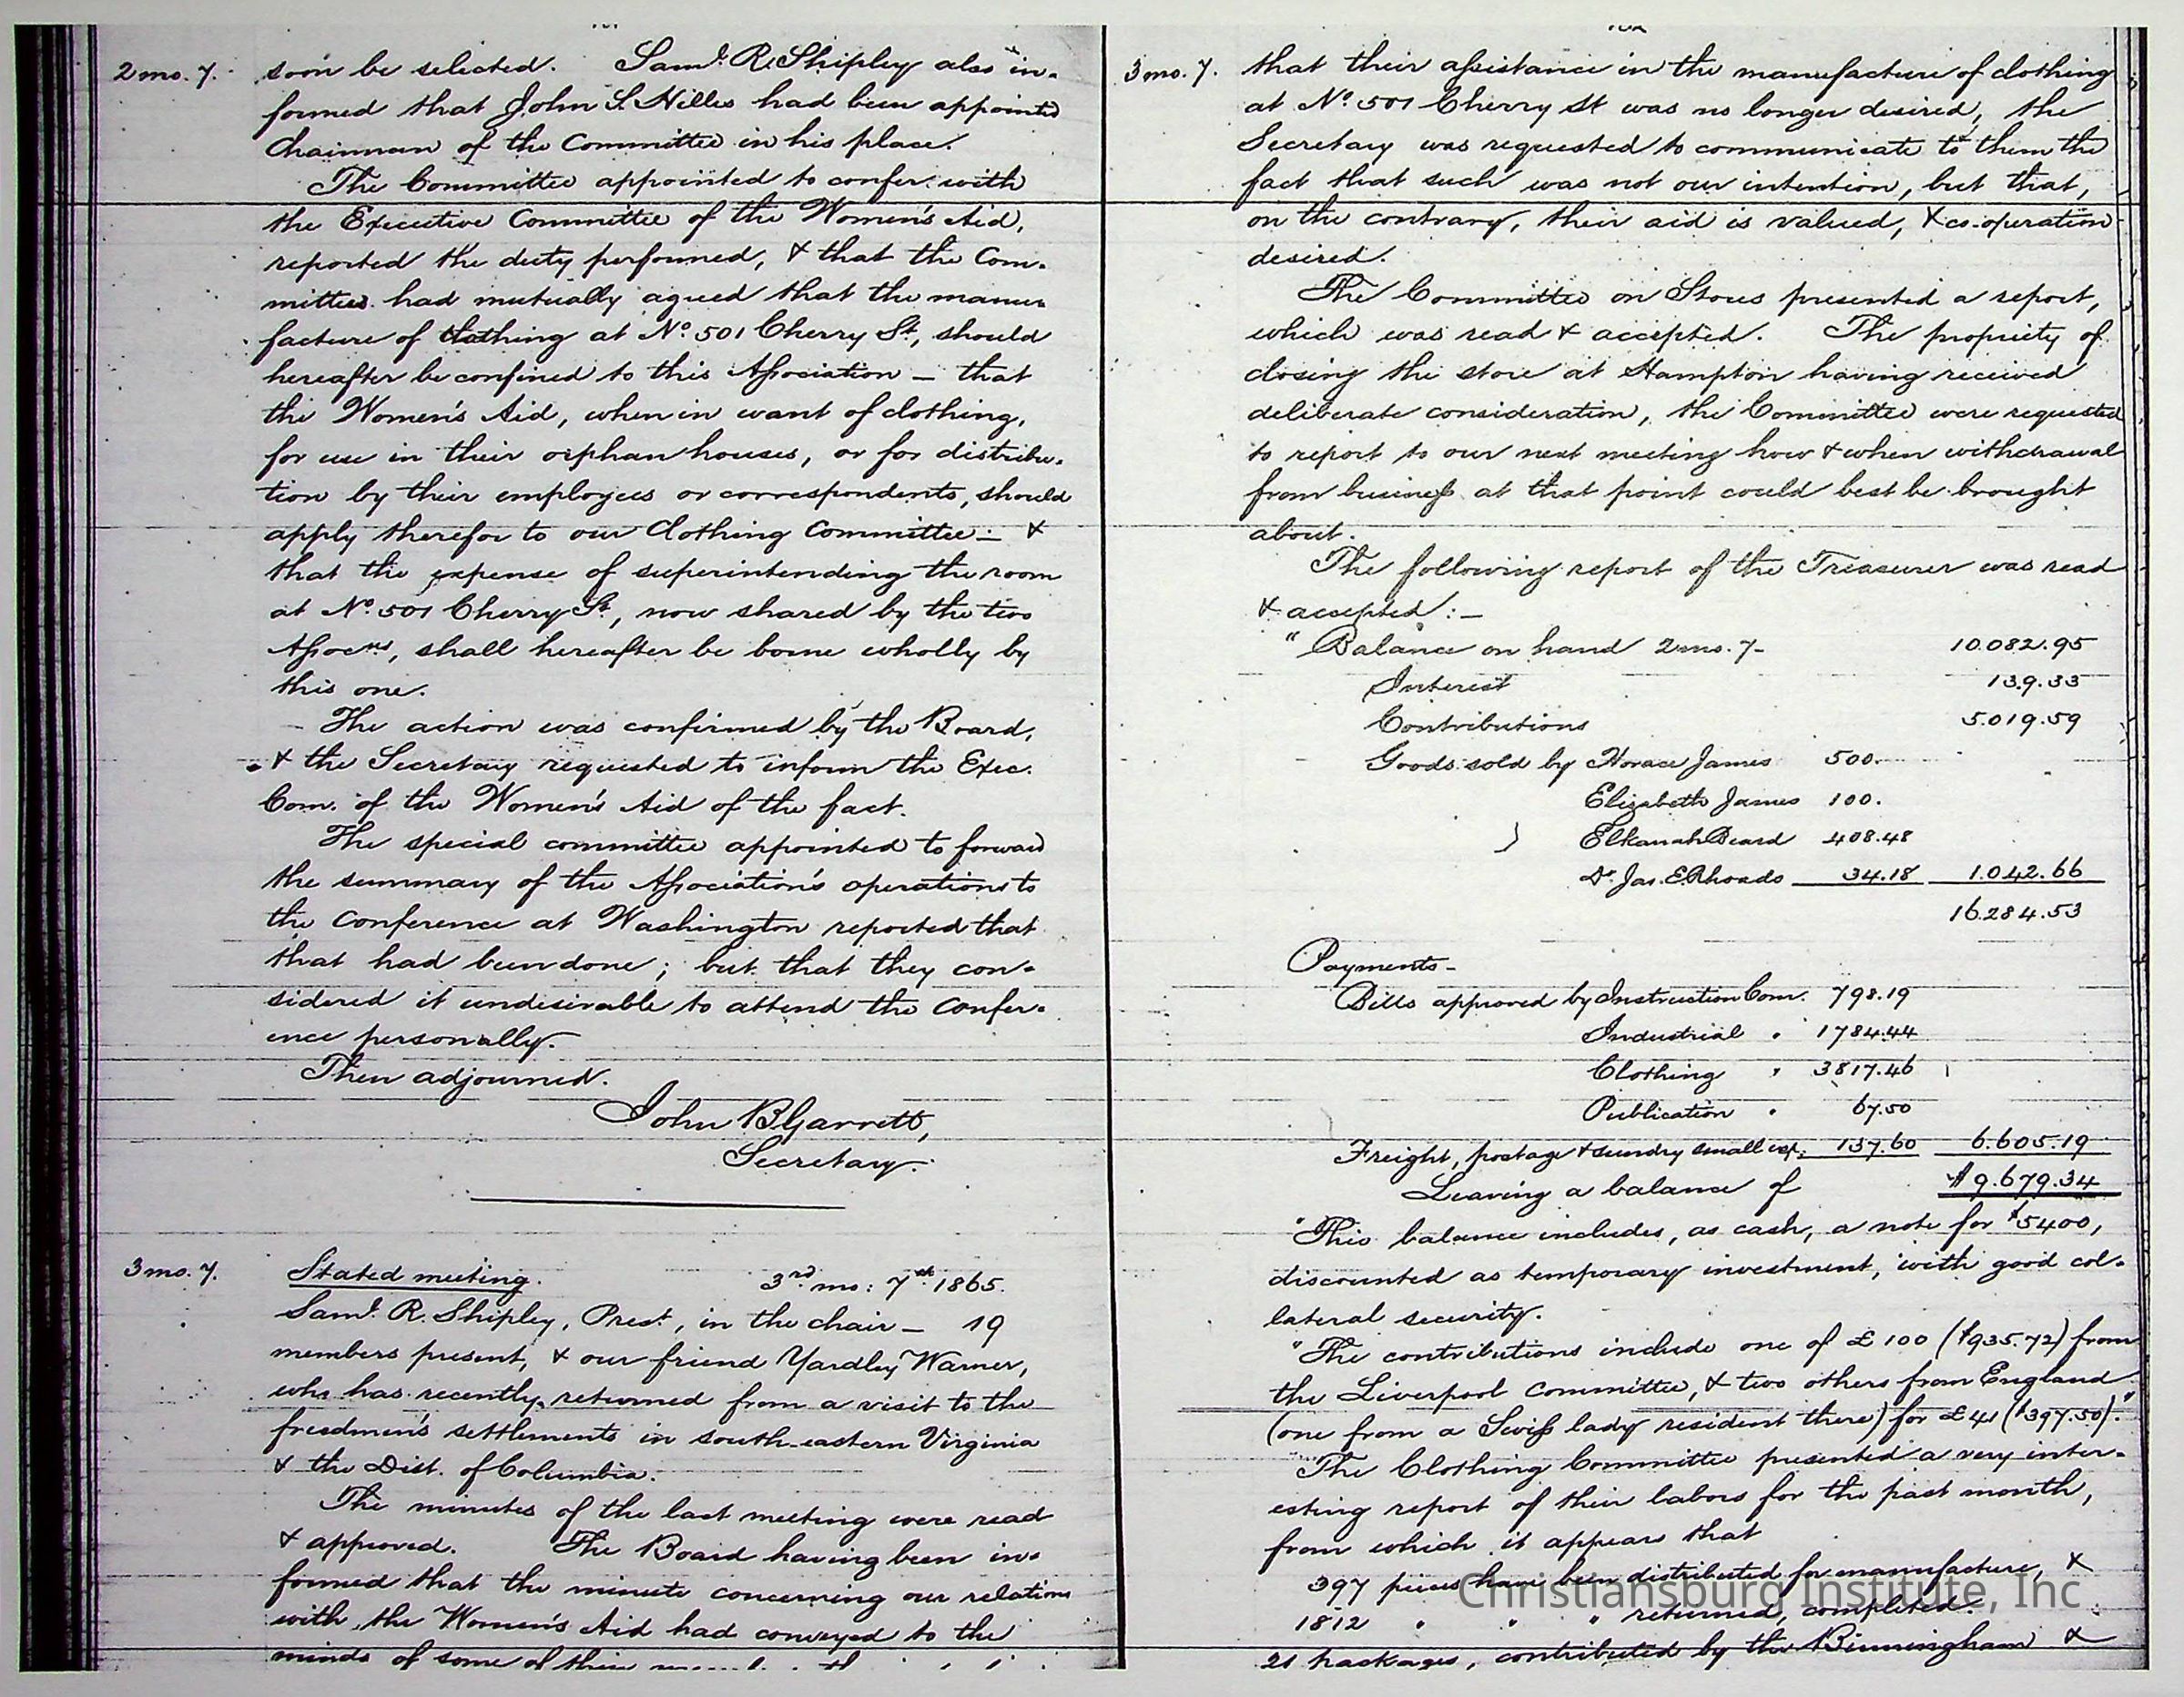 2 mo. 7.
soon be selected. Saml. R. Shipley also in-
formed that John S. Hilles had been appointed
Chairman of the Committee in his place.
The Committee appointed to confer with
the Executive Committee of the Women's Aid,
reported the duty performed, & that the Com-
mittees had mutually agreed that the manu-
facture of clothing at No. 501 Cherry St., should
hereafter be confined to this Association — that
the Women's Aid, when in want of clothing,
for use in their orphan houses, or for distribu-
tion by their employees or correspondents, should
apply therefor to our Clothing Committee:— &
that the expense of superintending the room
at No. 501 Cherry St., now shared by the two
Assocns, shall hereafter be borne wholly by
this one.
The action was confirmed by the Board,
& the Secretary requested to inform the Exec.
Com. of the Women's Aid of the fact.
The special committee appointed to forward
the summary of the Association's operations to
the Conference at Washington reported that
that had been done; but that they con-
sidered it undesirable to attend the Confer-
ence personally.
Then adjourned.
John B. Garrett,
Secretary.
3 mo. 7.
Stated meeting. 3rd mo: 7th 1865.
Saml. R. Shipley, Prest., in the chair — 19
members present, & our friend Yardley Warner,
who has recently returned from a visit to the
freedmen's settlements in south-eastern Virginia
& the Dist. of Columbia.
The minutes of the last meeting were read
& approved. The Board having been in-
formed that the minute concerning our relations
with the Women's Aid had conveyed to the
minds of some of their
3 mo. 7.
that their assistance in the manufacture of clothing
at No. 501 Cherry St was no longer desired, the
Secretary was requested to communicate to them the
fact that such was not our intention, but that,
on the contrary, their aid is valued, & co-operation
desired.
The Committee on Stores presented a report,
which was read & accepted. The propriety of
closing the store at Hampton having received
deliberate consideration, the Committee were requested
to report to our next meeting how & when withdrawal
from business at that point could best be brought
about.
The following report of the Treasurer was read
& accepted:—
"Balance on hand 2 mo. 7- 10.082.95
Interest 139.33
Contributions 5.019.59
Goods sold by Horace James 500.
Elizabeth James 100.
Elkanah Beard 408.48
Dr. Jas. E. Rhoads 34.18 1.042.66
16.284.53
Payments-
Bills approved by Instruction Com. 798.19
Industrial " 1784.44
Clothing " 3817.46
Publication " 67.50
Freight, postage & sundry small exp. 137.60 6.605.19
Leaving a balance of $9.679.34
"This balance includes, as cash, a note for $5400,
discounted as temporary investment, with good col-
lateral security.
"The contributions include one of £100 ($935.72) from
the Liverpool Committee, & two others from England
(one from a Swiss lady resident there) for £41 ($397.50)."
The Clothing Committee presented a very inter-
esting report of their labors for the past month,
from which it appears that
397 pieces have been distributed for manufacture, &
1812 " " " returned, completed.
21 packages, contributed by the Birmingham &
Christiansburg Institute, Inc